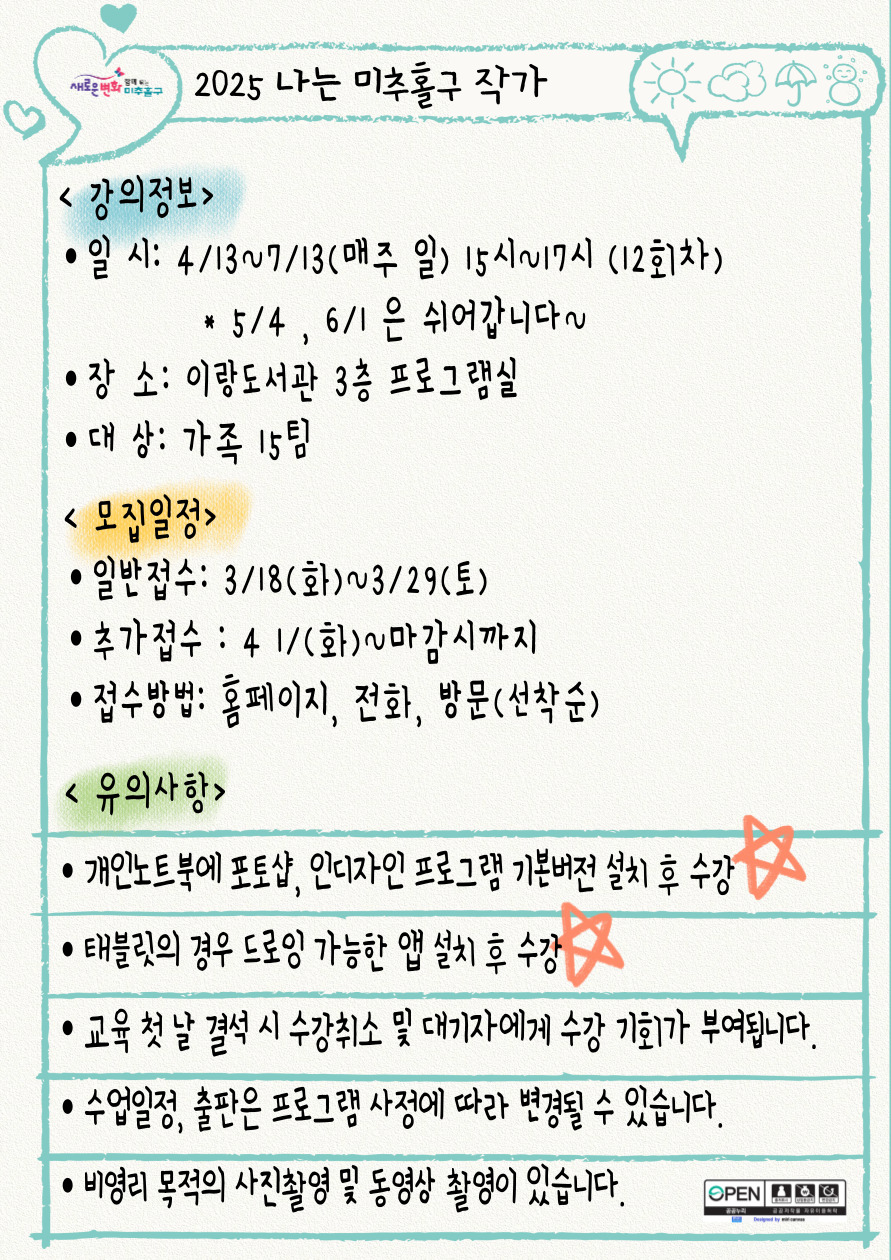 새로운 변화 함께 뛰는 미추홀구
2025 나는 미추홀구 작가
< 강의정보>
• 일 시: 4/13~7/13(매주 일) 15시~17시 (12회차)
* 5/4 , 6/1 은 쉬어갑니다~
• 장 소: 이랑도서관 3층 프로그램실
• 대 상: 가족 15팀
< 모집일정>
• 일반접수: 3/18(화)~3/29(토)
• 추가접수 : 4 1/(화)~마감시까지
• 접수방법: 홈페이지, 전화, 방문(선착순)
< 유의사항>
• 개인노트북에 포토샵, 인디자인 프로그램 기본버전 설치 후 수강
• 태블릿의 경우 드로잉 가능한 앱 설치 후 수강
• 교육 첫 날 결석 시 수강취소 및 대기자에게 수강 기회가 부여됩니다.
• 수업일정, 출판은 프로그램 사정에 따라 변경될 수 있습니다.
• 비영리 목적의 사진촬영 및 동영상 촬영이 있습니다.
OPEN
공공누리 공공저작물 자유이용허락
Designed by miricanvas